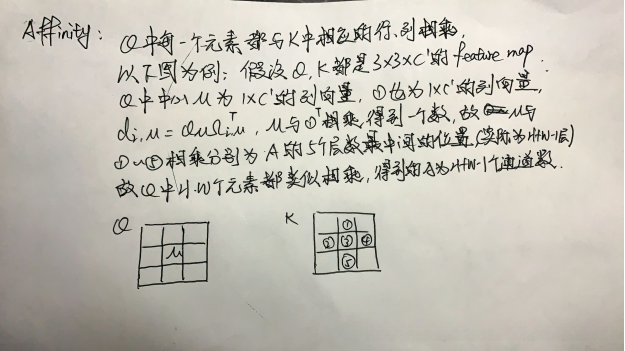 Affinity: Q中每一个元素都与K中相应的行、列相乘,
以下图为例: 假设Q, K都是3×3×C'的feature map.
Q中中心u为1×C'的列向量, ①也为1×C'的列向量,
di,u = QuΩi,uᵀ, u与①ᵀ相乘得到一个数, 故 u与
①~⑤相乘分别为A的5个层数最中间的位置(实际为H+W-1层)
故Q中H·W个元素都类似相乘, 得到的A为H+W-1个通道数.
Q K
u
①
② ③ ④
⑤